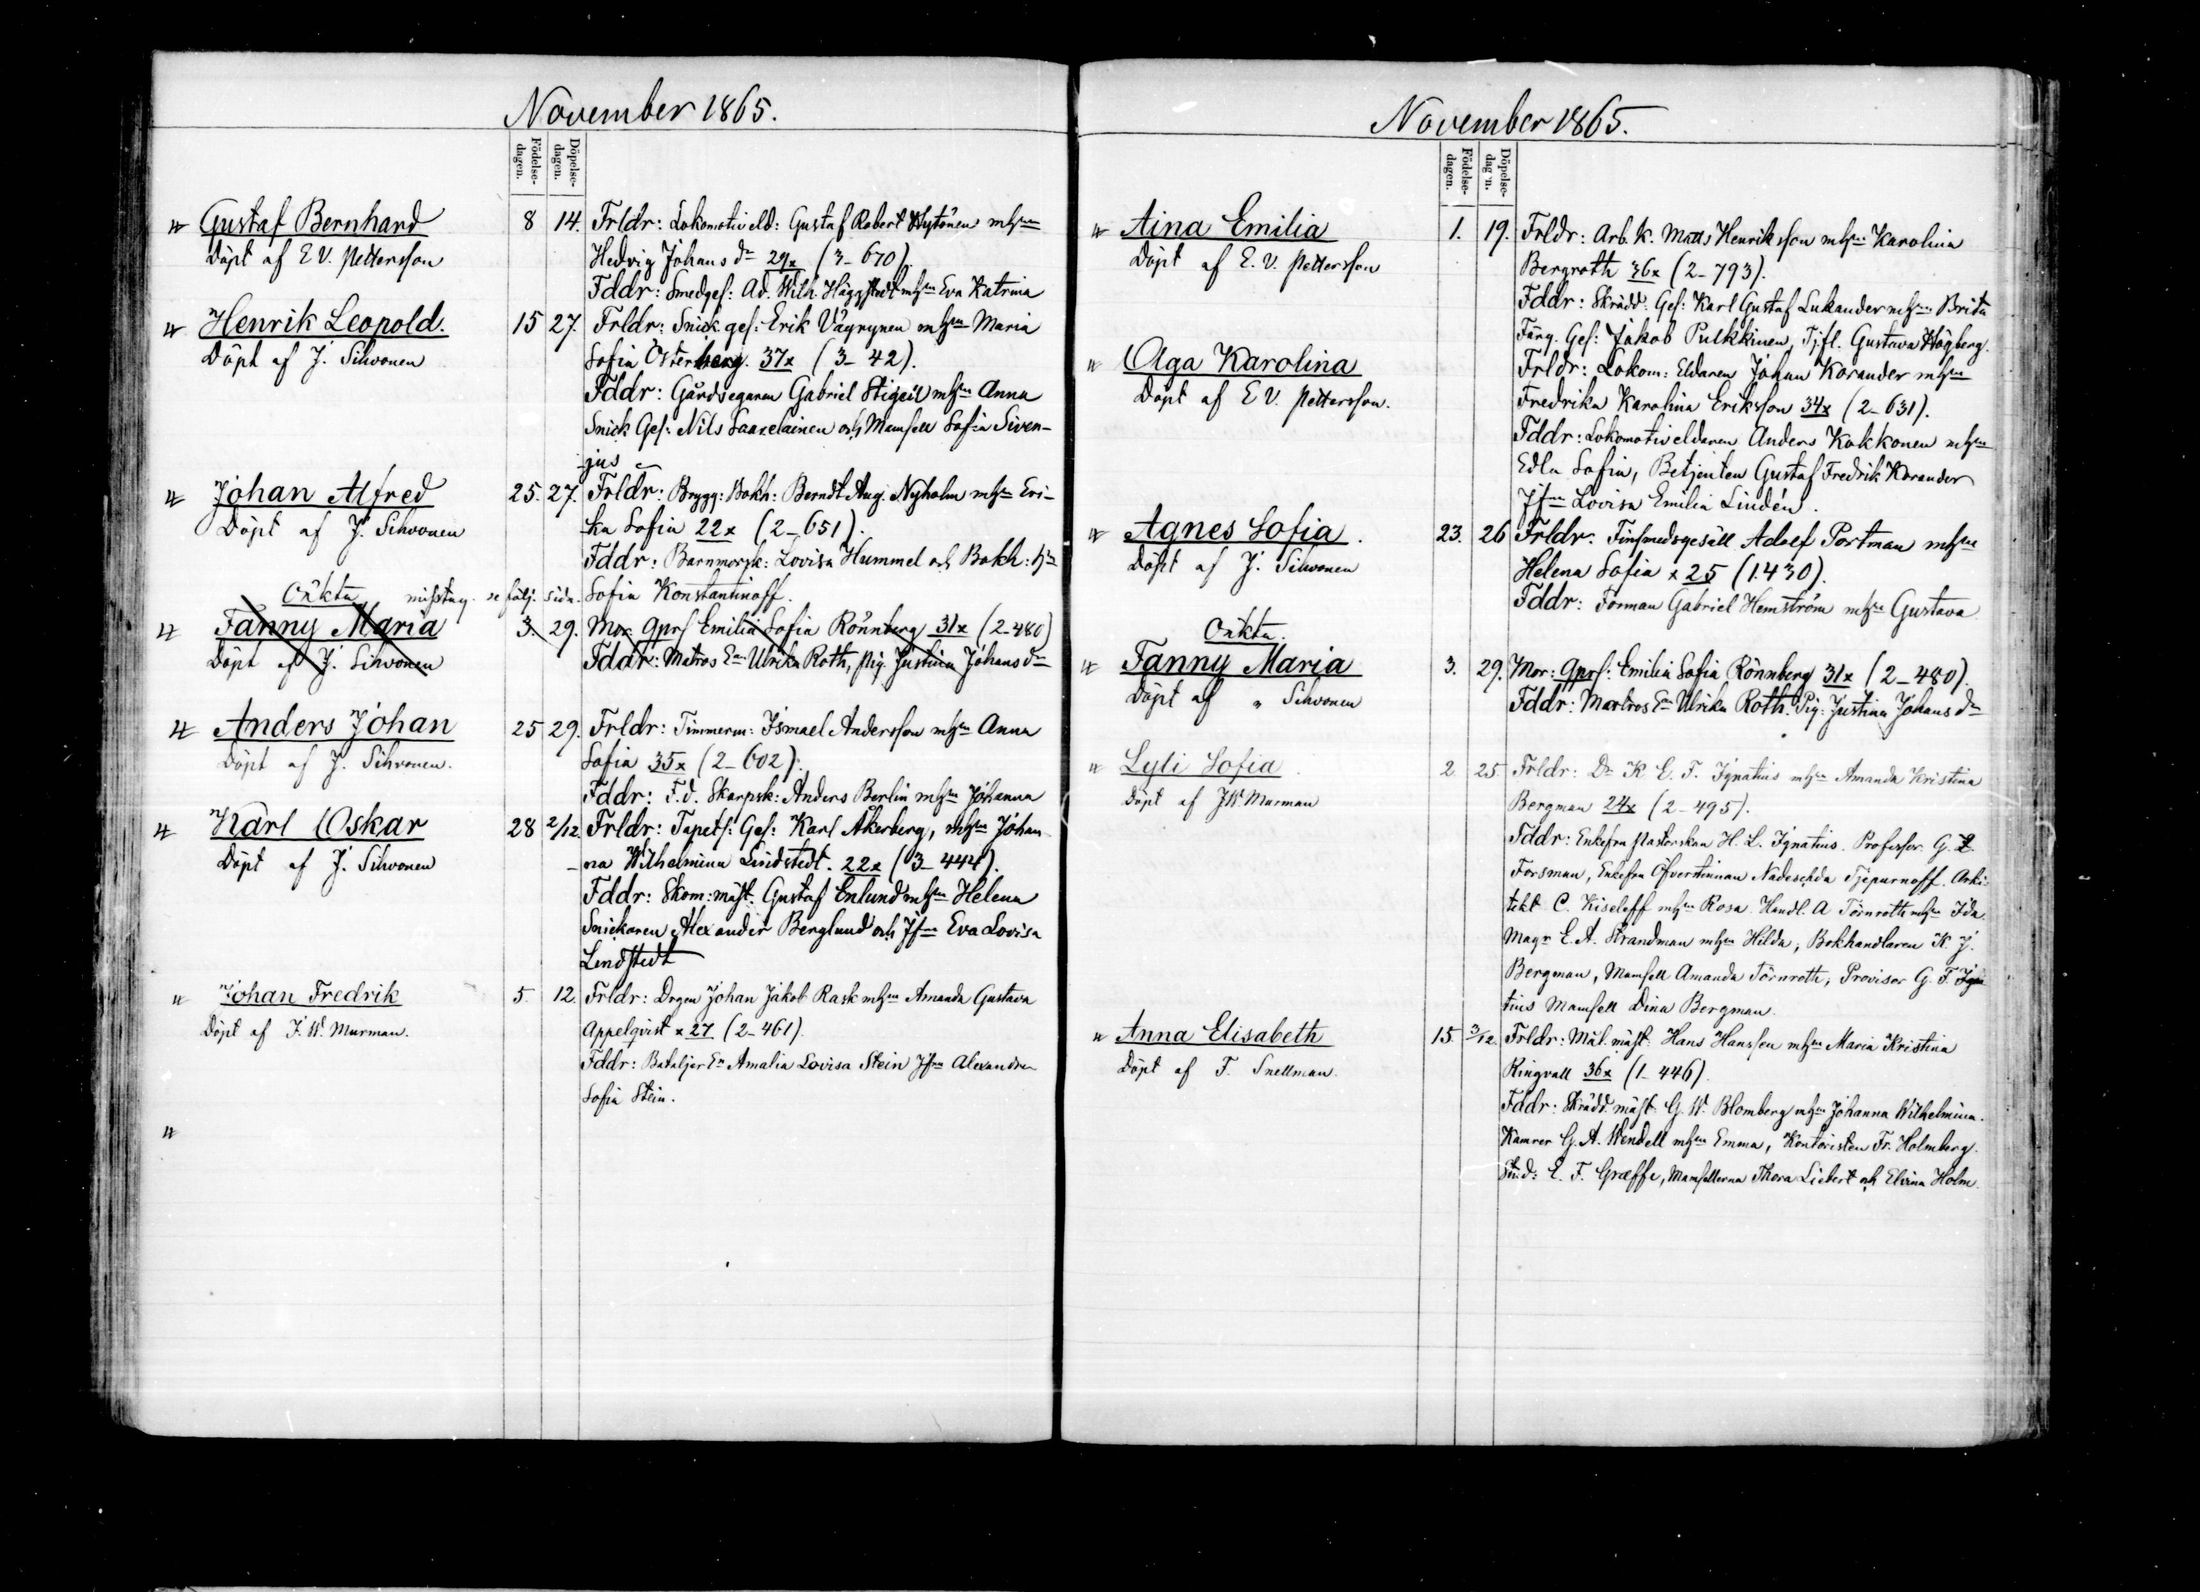 November 1865.
Födelse-dagen. Döpelse-dagen.
Gustaf Bernhard 8 14. Frldr: Lokomotiv eld: Gustaf Robert Nytönen mhru
Döpt af E V. Pettersson Hedvig Johans dr 29x (3-670).
Fddr: Smedges: Ad. Wilh. Häggstedt mhru Eva Katrina
Henrik Leopold. 15 27. Frldr: Snick. ges: Erik Väyrynen mhru Maria
Döpt af J. Sihvonen Sofia Österberg. 37x (3-42).
Fddr: Gårdsegaren Gabriel Stigell mhru Anna
Snick Ges: Nils Saaxelainen och Mamsell Sofia Siven-
jus
Johan Alfred 25. 27. Frldr: Brygg: Bokh: Berndt Aug. Nyholm mhru Eri-
Döpt af J. Sihvonen ka Sofia 22x (2-651).
Fddr: Barnmorsk: Lovisa Hummel och Bokh: hru
Oäkta misstag. se följ. sida. Sofia Konstantinoff.
Fanny Maria 3. 29. Mor Qprs Emilia Sofia Rönnberg 31x (2-480)
Döpt af J. Sihvonen Fddr: Matros En Ulrika Roth, Pig. Justina Johans dr
Anders Johan 25 29. Frldr: Timmerm: Ismael Andersson mhru Anna
Döpt af J. Sihvonen. Sofia 35x (2-602).
Fddr: F.d. Skarpsk: Anders Berlin mhru Johanna
Karl Oskar 28 2/12. Frldr: Tapets: Ges: Karl Åkerberg, mhru Johan-
Döpt af J. Sihvonen na Wilhelmina Lindstedt. 22x (3-444).
Fddr: Skom: mäst. Gustaf Enlund mhru Helena
Snickaren Alexander Berglund och Jfru Eva Lovisa
Lindstedt
Johan Fredrik 5. 12. Frldr: Drgen Johan Jakob Rask mhru Amanda Gustava
Döpt af J. W. Murman. Appelqvist x 27 (2-461).
Fddr: Bataljor En Amalia Lovisa Stein Jfru Alexandra
Sofia Stein.
November 1865.
Födelse-dagen. Döpelse-dag'n.
Aina Emilia 1. 19. Frldr: Arb. k. Matts Henriksson mhru Karolina
Döpt af E. V. Pettersson Bergroth 36x (2-793).
Fddr: Skrädd: Ges: Karl Gustaf Lukander mhru Brita
Färg. Ges: Jakob Pulkkinen, Tjfl. Gustava Högberg.
Olga Karolina Frldr: Lokom: Eldaren Johan Korander mhru
Döpt af E V. Pettersson. Fredrika Karolina Eriksson 34x (2-631).
Fddr: Lokomotiv eldaren Anders Kokkonen mhru
Edla Sofia, Betjenten Gustaf Fredrik Korander
Jfru Lovisa Emilia Lindén.
Agnes Sofia. 23. 26 Frldr. Finsmedsgesäll Adolf Portman mhru
Döpt af J. Sihvonen Helena Sofia x 25 (1.430).
Fddr: Forman Gabriel Hemström mhru Gustava
Oäkta.
Fanny Maria 3. 29. Mor: Qprs: Emilia Sofia Rönnberg 31x (2-480).
Döpt af " Sihvonen Fddr: Martros En Ulrika Roth. Pig: Justina Johans dr
Lyli Sofia 2 25. Frldr: Dr K E. F. Ignatius mhru Amanda Kristina
Döpt af J W. Murman Bergman 24x (2-495).
Fddr: Enkefru Pastorskan H. L. Ignatius. Professor G. Z.
Forsman, Enkefru Öfverstinnan Nadeschda Tjepurnoff. Arki-
tekt C. Kiseleff mhru Rosa. Handl. A Törnroth mhru Ida.
Magr E. A. Strandman mhru Hilda, Bokhandlaren K. J.
Bergman, Mamsell Amanda Törnroth, Provisor G. F. Igna
tius Mamsell Dina Bergman.
Anna Elisabeth 15. 3/12. Frldr: Mål. mäst: Hans Hanssen mhru Maria Kristina
Döpt af F. Snellman. Ringvall 36x (1-446).
Fddr: Skrädd. mäst: G. W. Blomberg mhru Johanna Wilhelmina.
Kamrer G. A. Wendell mhru Emma, Kontoristen Fr. Holmberg.
Stud: E. F. Græffe, Mamsellerna Thora Liebert och Elvina Holm.